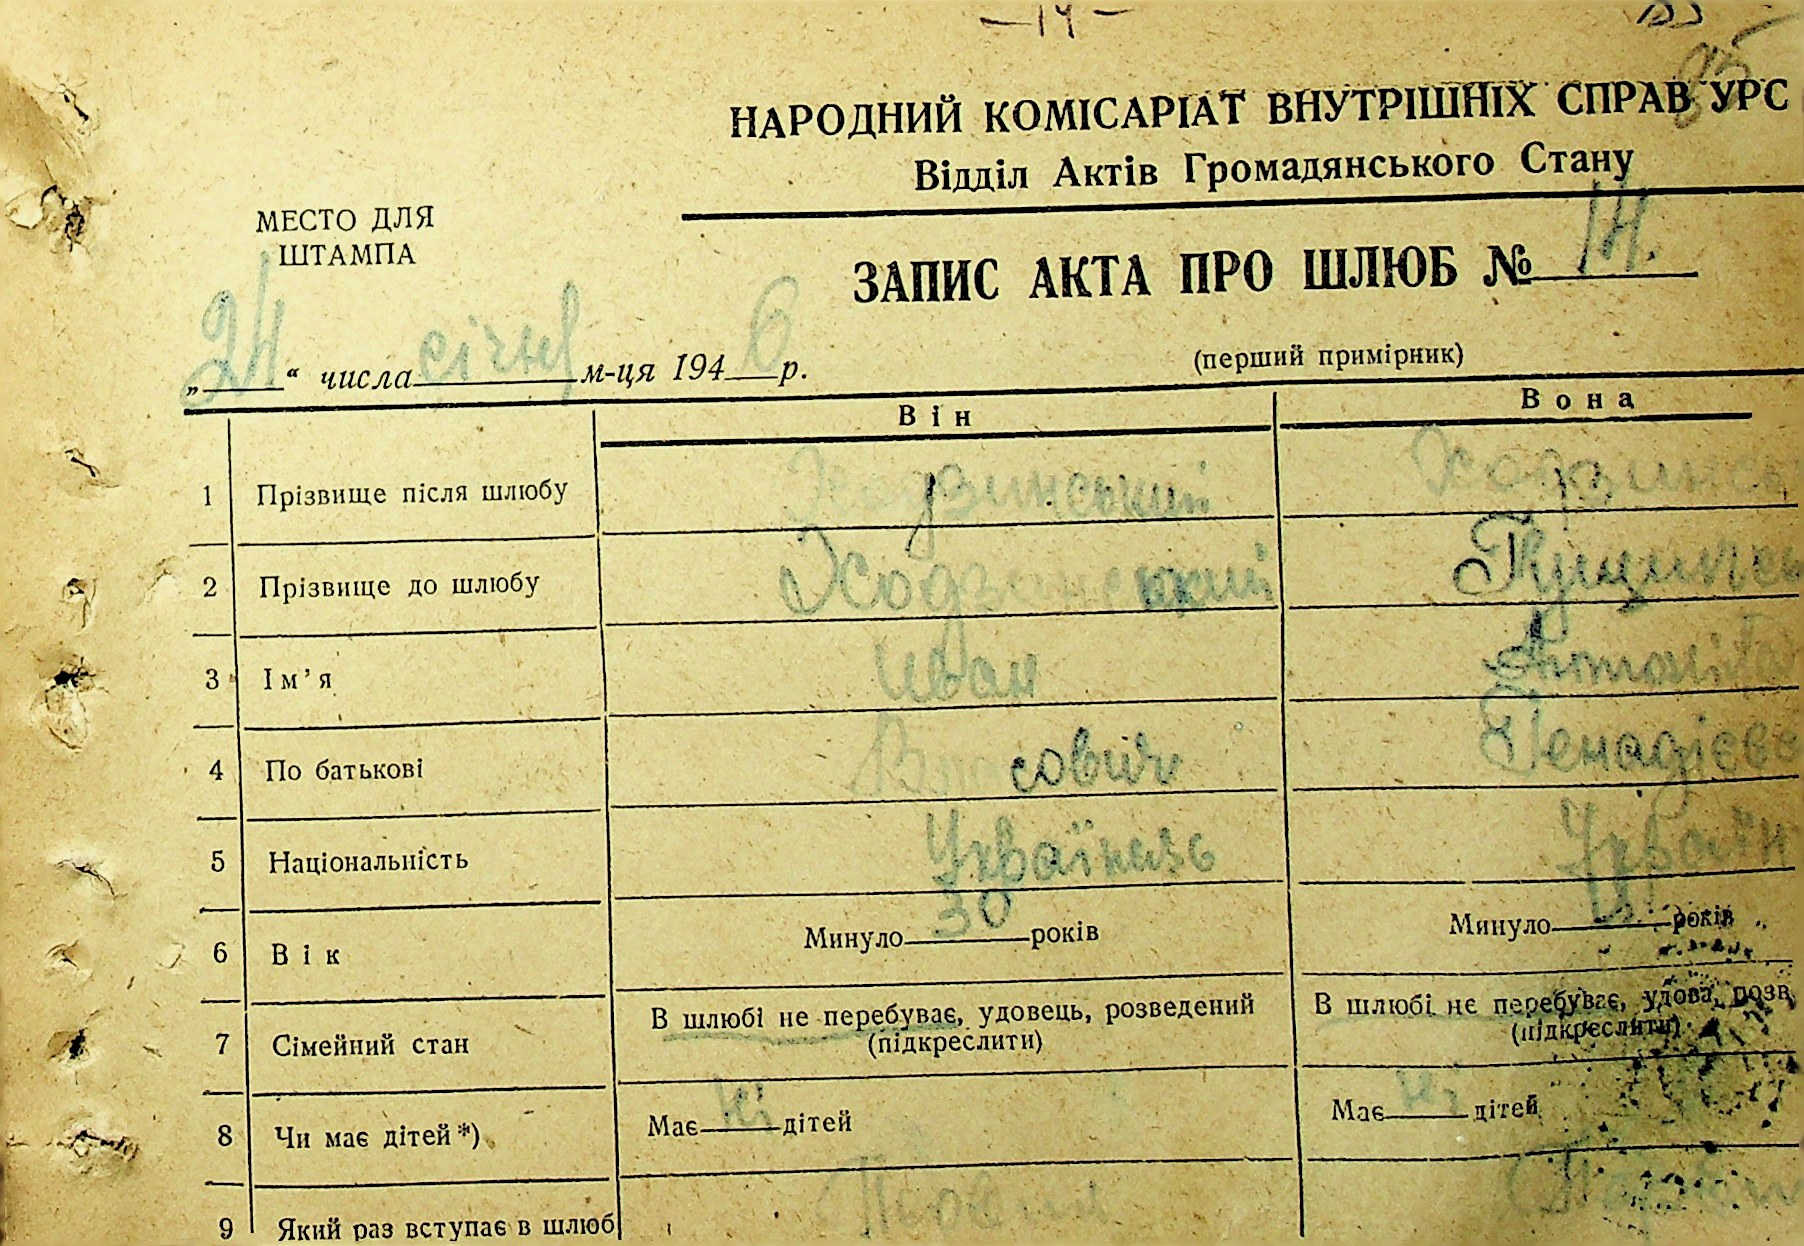 — 14 —
95
НАРОДНИЙ КОМІСАРІАТ ВНУТРІШНІХ СПРАВ УРС
Відділ Актів Громадянського Стану
МЕСТО ДЛЯ
ШТАМПА
ЗАПИС АКТА ПРО ШЛЮБ № 14.
„24“ числа січня м-ця 1946 р.
(перший примірник)
Він Вона
1 Прізвище після шлюбу Ходзинський Ходзинсь
2 Прізвище до шлюбу Ходзинський
3 Ім’я Иван Антоніна
4 По батькові Власович Генадієв
5 Національність Українець Україн
6 Вік Минуло 30 років Минуло років
7 Сімейний стан В шлюбі не перебуває, удовець, розведений В шлюбі не перебуває, удова, розв
(підкреслити) (підкреслити)
8 Чи має дітей *) Має ні дітей Має ні дітей
9 Який раз вступає в шлюб